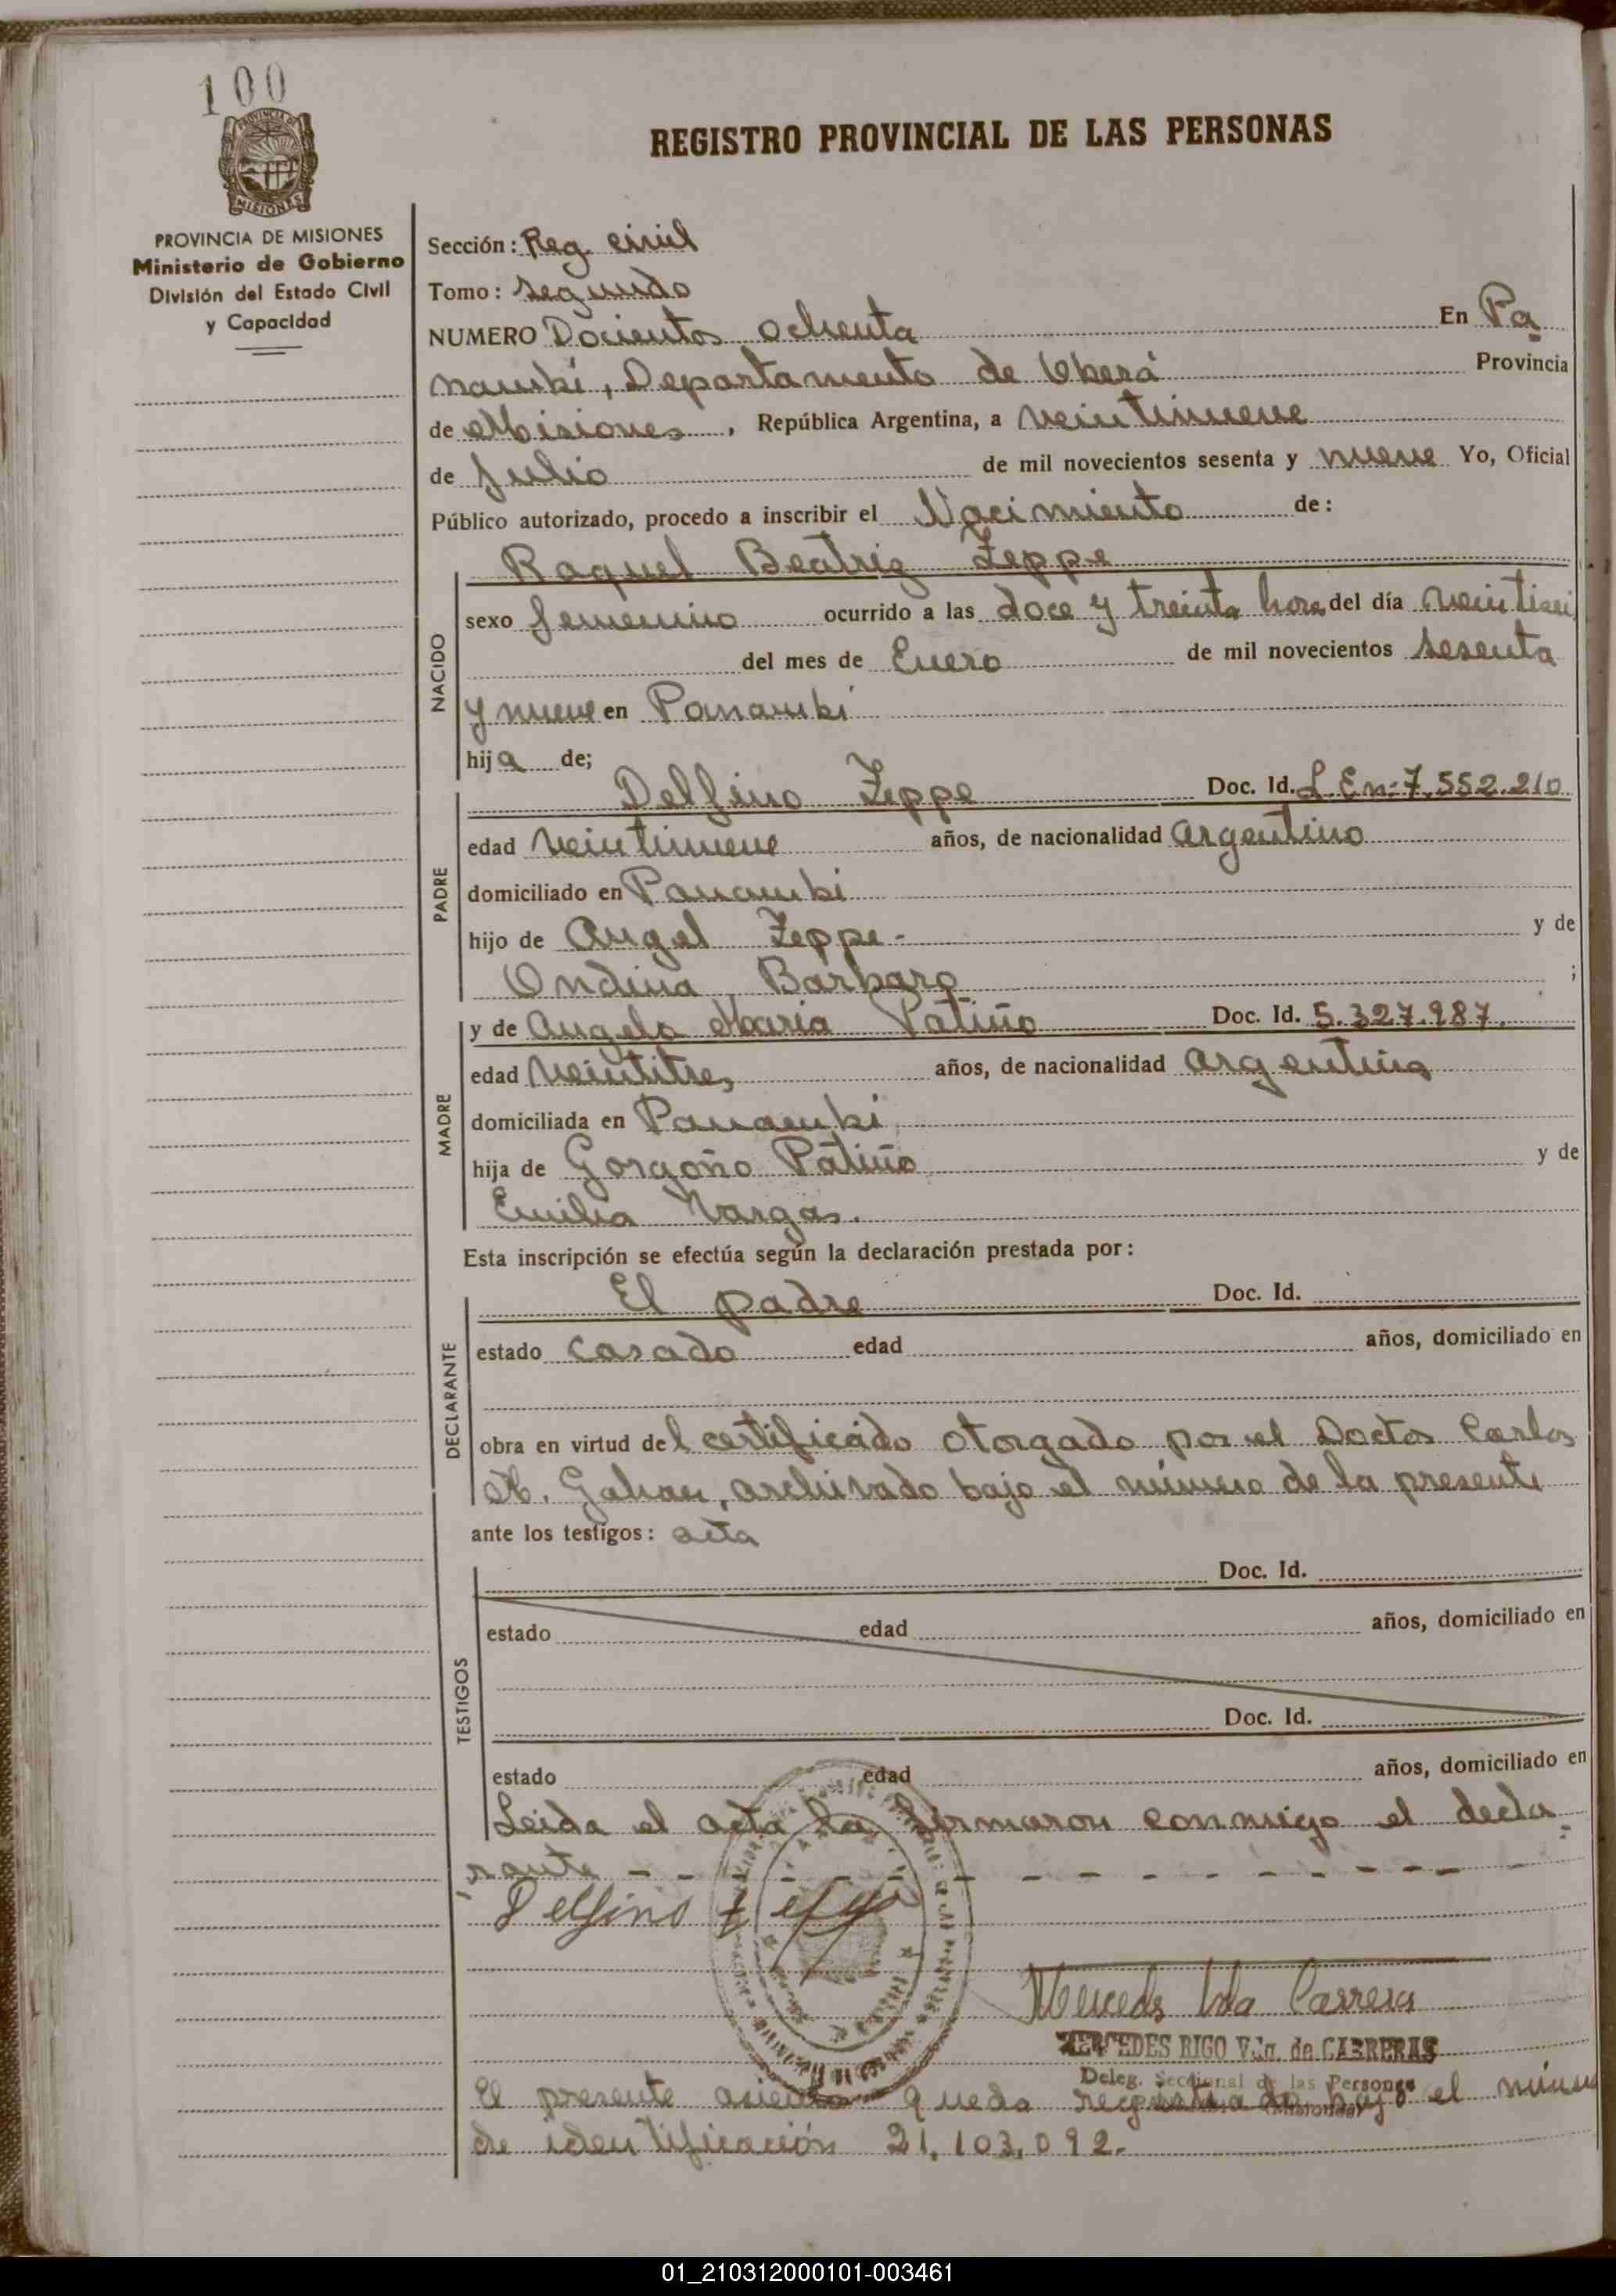 100
PROVINCIA DE
MISIONES
REGISTRO PROVINCIAL DE LAS PERSONAS
PROVINCIA DE MISIONES
Ministerio de Gobierno
División del Estado Civil
y Capacidad
Sección: Reg. civil
Tomo: segundo
NUMERO Docientos ochenta En Pa
nambí, Departamento de Oberá Provincia
de Misiones, República Argentina, a veintinueve
de Julio de mil novecientos sesenta y nueve Yo, Oficial
Público autorizado, procedo a inscribir el Nacimiento de:
Raquel Beatriz Zeppe
NACIDO
sexo femenino ocurrido a las doce y treinta hora del día
del mes de Enero de mil novecientos sesenta
y nueve en Panambi
hija de;
PADRE
Delfino Zeppe Doc. Id. L.En: 7.552.210
edad veintinueve años, de nacionalidad argentino
domiciliado en Panambi
hijo de Angel Zeppe- y de
Ondina Barbaro ;
MADRE
y de Angela Maria Patiño Doc. Id. 5.327.987.
edad veintitres años, de nacionalidad argentina
domiciliada en Panambi
hija de Gorgoño Patiño y de
Emilia Vargas.
Esta inscripción se efectúa según la declaración prestada por:
DECLARANTE
El padre Doc. Id.
estado casado edad años, domiciliado en
obra en virtud del certificado otorgado por el Doctor Carlos
archivado bajo el número de la presente
ante los testigos: acta
TESTIGOS
Doc. Id.
estado edad años, domiciliado en
Doc. Id.
estado edad años, domiciliado en
Leida el acta la firmaron conmigo el decla
rante - - - - - - - - - - - - - -
Delfino Zeppe
Mercedes Vda Carreras
MERCEDES RIGO Vda. de CABRERAS
Deleg. Seccional de las Personas
(Misiones)
El presente asiento queda registrado bajo el número
de identificación 21.103.092.-
01_210312000101-003461